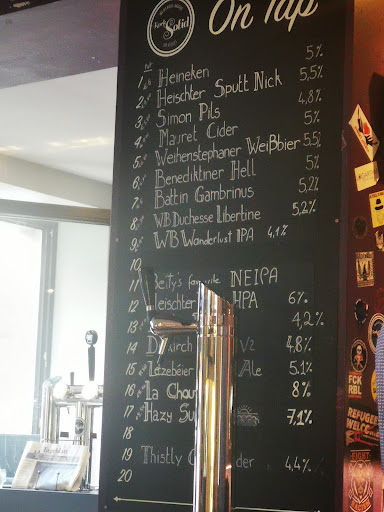 Rock Solid
On Tap
1. Heineken 5%
2. Heischter Sputt Nick 5,5%
3. Simon Pils 4,8%
4. Mauret Cider 5%
5. Weihenstephaner Weißbier 5,5%
6. Benediktiner Hell 5%
7. Battin Gambrinus 5,2%
8. WB Duchesse Libertine 5,2%
9. WB Wanderlust IPA 4,1%
10
11 Betty's favorite NEIPA
12 Heischter HPA 6%
13 4,2%
14 D kirch V2 4,8%
15 Lëtzebéier Ale 5.1%
16 La Chou 8%
17 Hazy Su 7,1%
18
19 Thistly C der 4,4%
20
FCK
RBL
REFUGEES
WELCOME
EIGHT